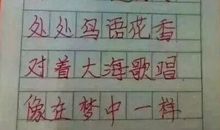 处处鸟语花香
对着大海歌唱
像在梦中一样